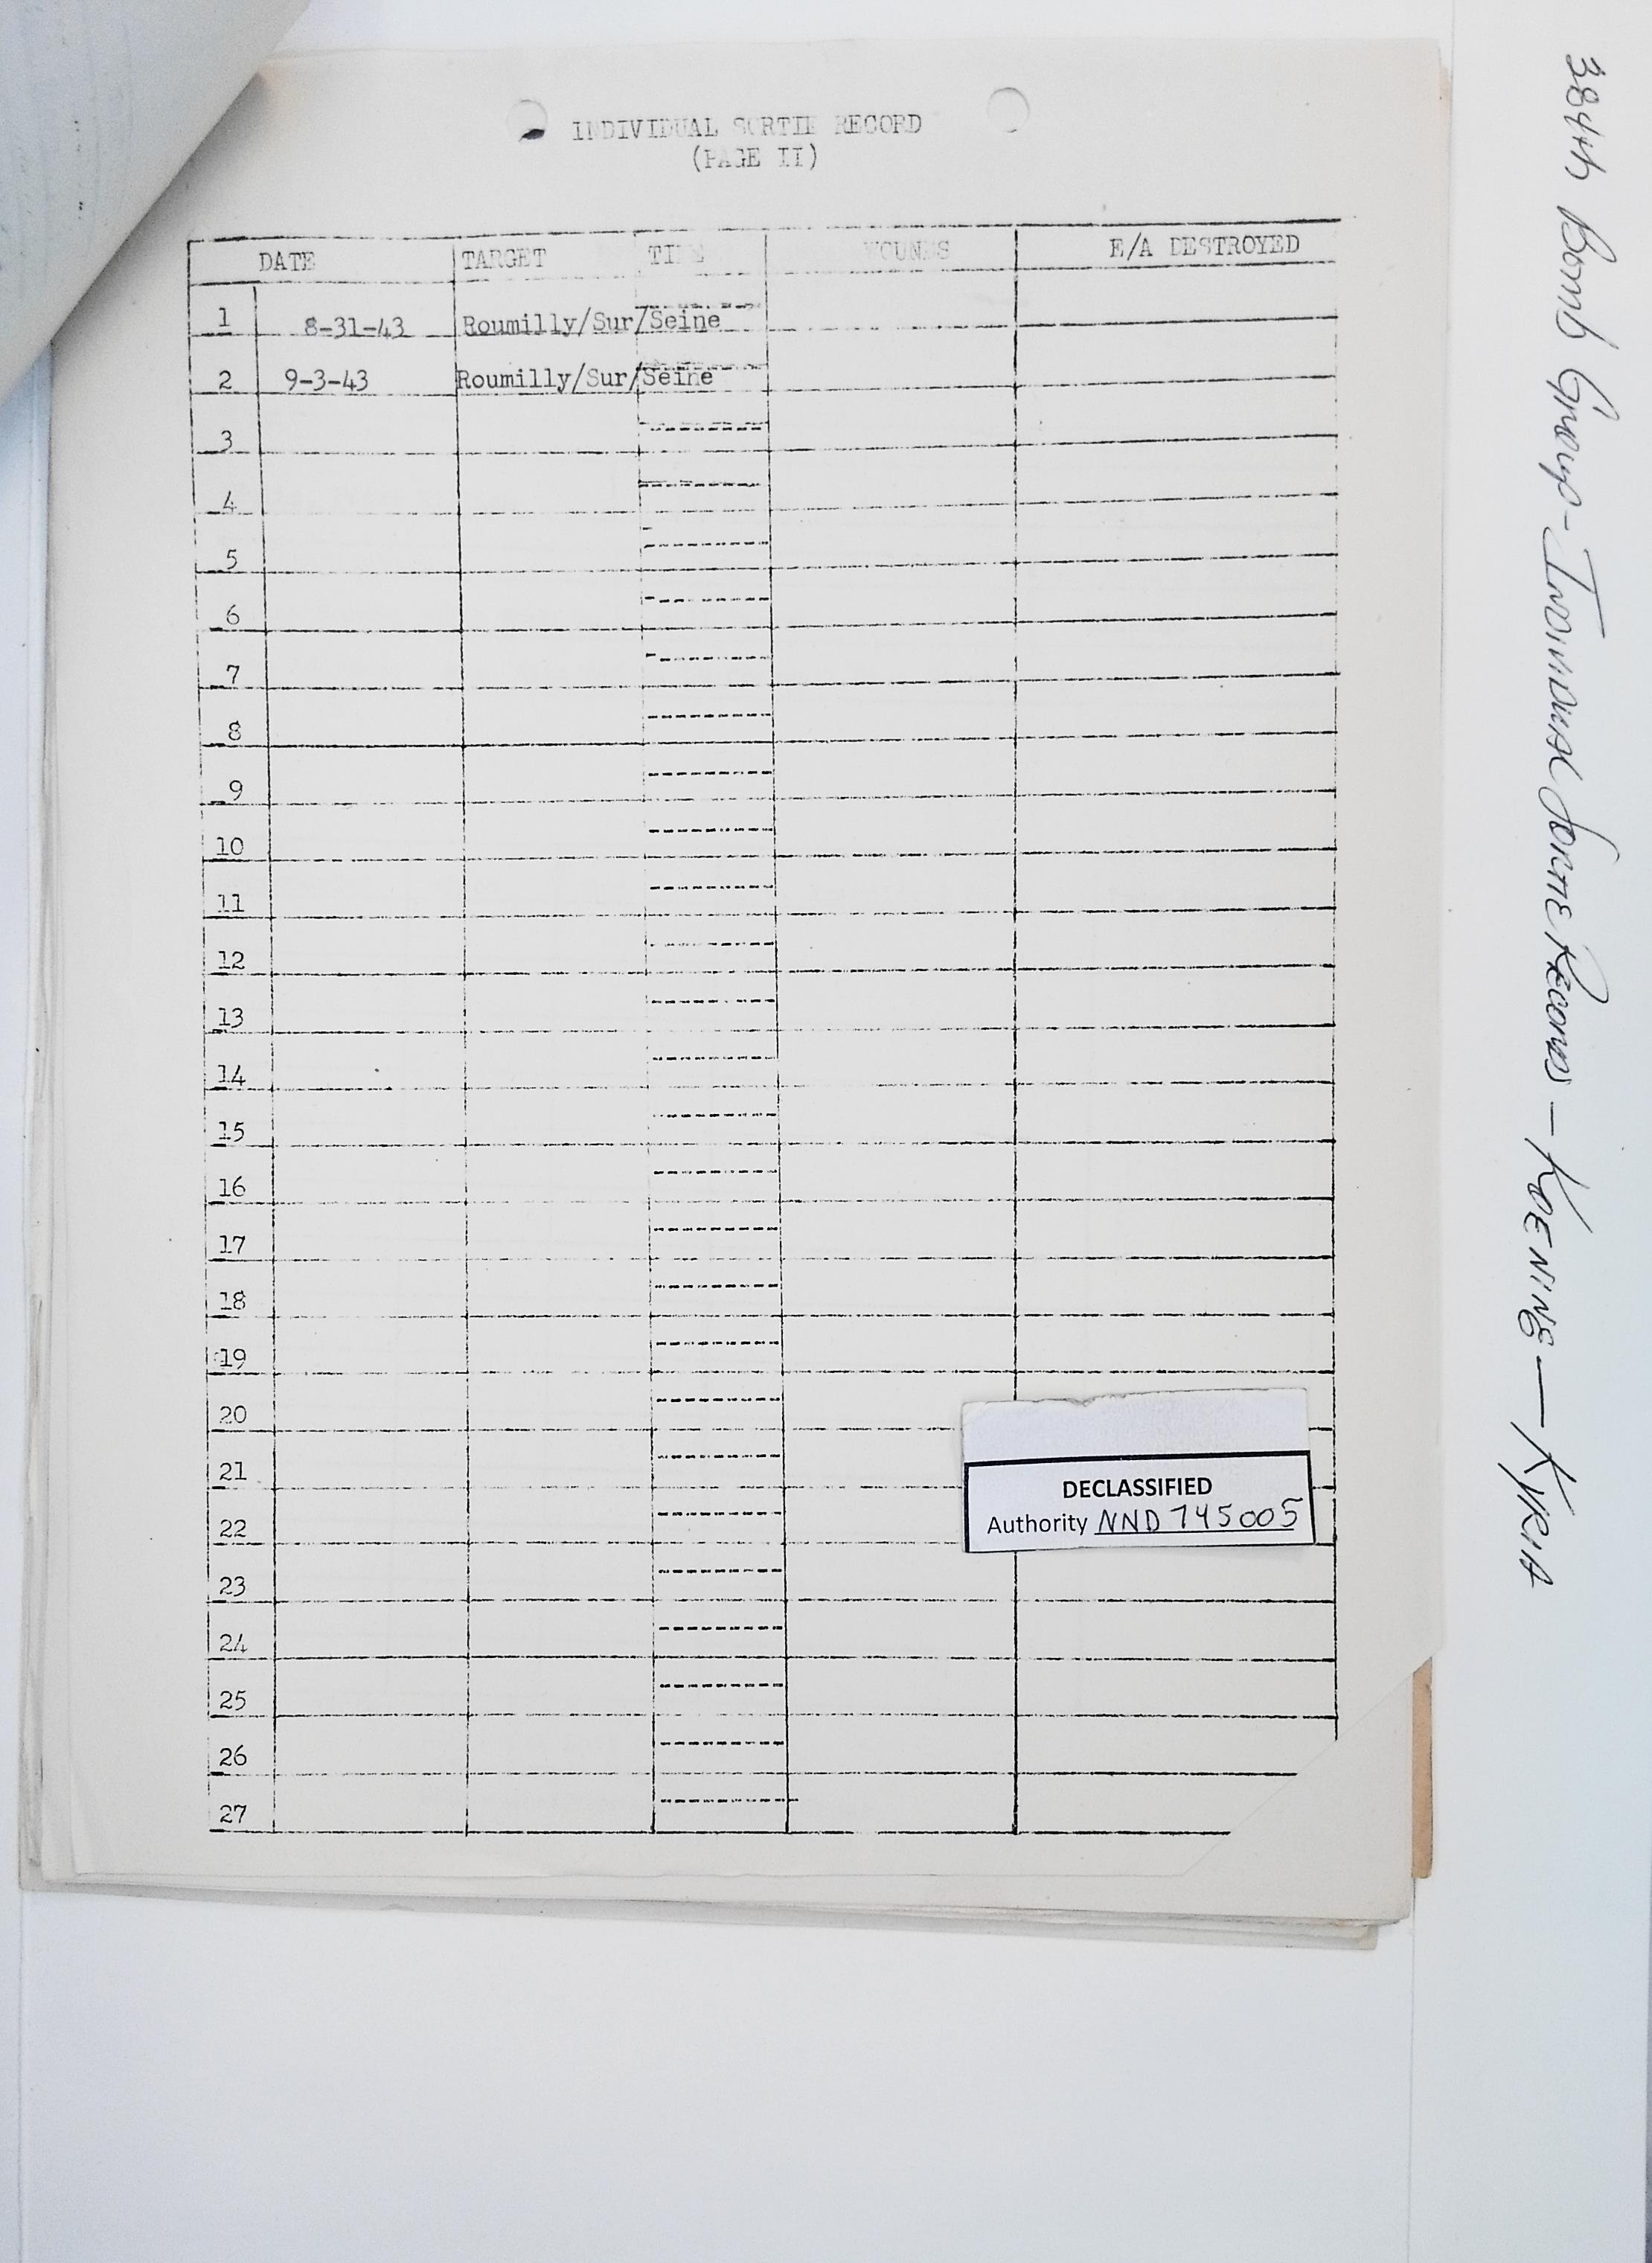 INDIVIDUAL SORTIE RECORD
(PAGE II)
DATE TARGET TIME WOUNDS E/A DESTROYED
1 8-31-43 Roumilly/Sur/Seine
2 9-3-43 Roumilly/Sur/Seine
3
4
5
6
7
8
9
10
11
12
13
14
15
16
17
18
19
20
21
22
23
24
25
26
27
DECLASSIFIED
Authority NND 745005
384th Bomb Group - Individual Sortie Records - KOENING - KYRIA